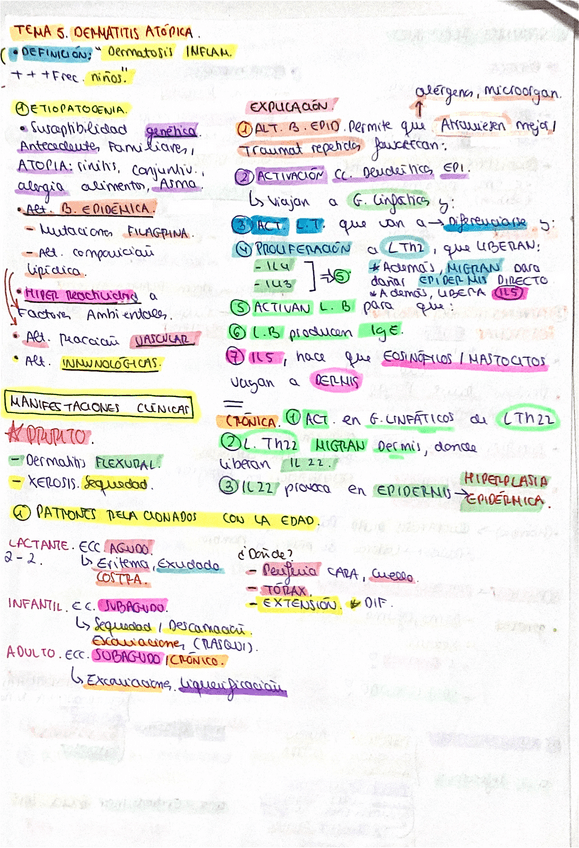 TEMA 5. DERMATITIS ATÓPICA.
• DEFINICIÓN: "Dermatosis INFLAM.
+++Frec. niños."
① ETIOPATOGENIA.
• Susceptibilidad genética.
Antecedente, Familiares,
ATOPIA: rinitis, conjuntiv.,
alergia alimentos, Asma.
• Alt. B. EPIDÉMICA.
- Mutaciones FILAGRINA.
- Alt. composición
lipídica.
• HIPER Reactividad a
Factores Ambientales.
• Alt. reacción VASCULAR
• Alt. INMUNOLÓGICAS.
EXPLICACIÓN.
alérgenos, microorgan.
① ALT. B. EPID. Permite que Atraviesen mejor/
Traumat repetidos favorezcan:
② ACTIVACIÓN CC. Dendríticas EPI.
↳ Viajan a G. linfáticos y:
③ ACT. L.T. que van a → Diferenciarse y:
④ PROLIFERACIÓN a LTh2, que LIBERAN:
- IL4
- IL13
→ ⑤
* Además, MIGRAN para
dañar EPIDERMIS DIRECTO
* Además, LIBERA IL5
⑤ ACTIVAN L.B para que:
⑥ L.B producen IgE.
⑦ IL5, hace que EOSINÓFILOS / MASTOCITOS
vayan a DERMIS
CRÓNICA. ① ACT. en G. LINFÁTICOS de LTh22
② L. Th22 MIGRAN Dermis, donde
liberan IL 22.
③ IL22 provoca en EPIDERMIS → HIPERPLASIA
EPIDÉRMICA.
MANIFESTACIONES CLÍNICAS
* PRURITO.
- Dermatitis FLEXURAL.
- XEROSIS. Sequedad.
① PATRONES RELACIONADOS CON LA EDAD.
LACTANTE. ECC AGUDO.
2-2.
↳ Eritema, Exudado
COSTRA.
¿Dónde?
- Periferia CARA, Cuello.
- TÓRAX.
- EXTENSIÓN. * DIF.
INFANTIL. EC. SUBAGUDO.
↳ Sequedad / Descamación.
Excoriaciones (RASQUI).
ADULTO. ECC. SUBAGUDO / CRÓNICO.
↳ Excoriaciones, Liquenificación